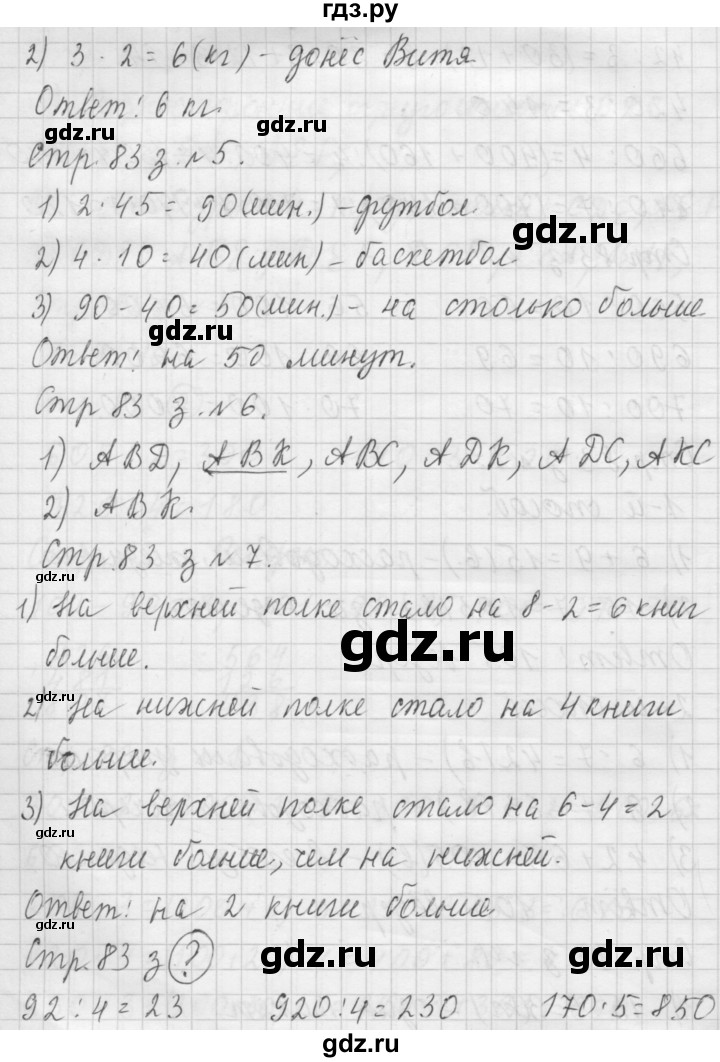 гдз.ру
2) 3 · 2 = 6 (кг) - донёс Витя
Ответ: 6 кг.
gdz.ru
gdz.ru
Стр. 83 з. №5.
1) 2 · 45 = 90 (мин.) - футбол.
gdz.ru
2) 4 · 10 = 40 (мин) - баскетбол.
3) 90 - 40 = 50 (мин.) - на столько больше
gdz.ru
Ответ: на 50 минут.
Стр 83 з. №6.
1) ABD, ABK, ABC, ADK, ADC, AKC
gdz.ru
2) ABK.
Стр. 83 з №7.
gdz.ru
1) На верхней полке стало на 8 - 2 = 6 книг
gdz.ru
больше.
gdz.ru
2) На нижней полке стало на 4 книги
больше.
3) На верхней полке стало на 6 - 4 = 2
gdz.ru
книги больше, чем на нижней.
Ответ: на 2 книги больше
Стр. 83 з ?
gdz.ru
gdz.ru
92 : 4 = 23 920 : 4 = 230 170 · 5 = 850
gdz.ru